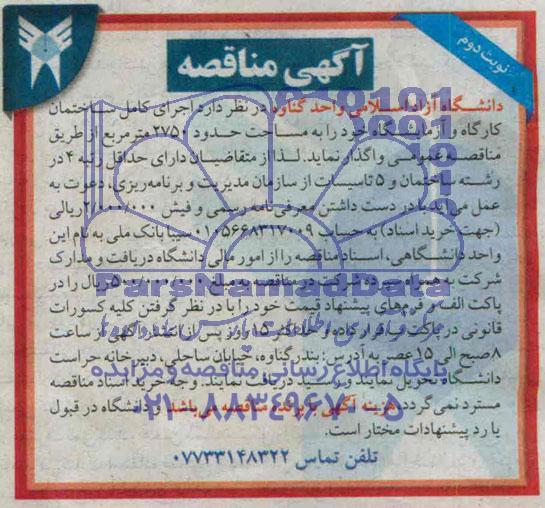 نوبت دوم
آگهی مناقصه
دانشگاه آزاد اسلامی واحد گناوه در نظر دارد اجرای کامل ساختمان
کارگاه و آزمایشگاه خود را به مساحت حدود ۲۷۵۰ مترمربع از طریق
مناقصه عمومی واگذار نماید. لذا از متقاضیان دارای حداقل رتبه ۴ در
رشته ساختمان و ۵ تاسیسات از سازمان مدیریت و برنامه‌ریزی، دعوت به
عمل می‌آید با در دست داشتن معرفی‌نامه رسمی و فیش ۲/۰۰۰/۰۰۰ ریالی
(جهت خرید اسناد) به حساب ۰۱۰۵۶۶۸۳۱۷۰۰۹ سیبا بانک ملی به نام این
واحد دانشگاهی، اسناد مناقصه را از امور مالی دانشگاه دریافت و مدارک
شرکت به همراه سپرده شرکت در مناقصه به مبلغ ریال را در
پاکت الف و فرم‌های پیشنهاد قیمت خود را با در نظر گرفتن کلیه کسورات
قانونی در پاکت ب قرار داده و حداکثر ۱۵ روز پس از انتشار آگهی از ساعت
۸ صبح الی ۱۵ عصر به آدرس: بندر گناوه، خیابان ساحلی، دبیرخانه حراست
دانشگاه تحویل نمایند و رسید دریافت نمایند. وجه خرید اسناد مناقصه
مسترد نمی‌گردد. هزینه آگهی با برنده مناقصه می‌باشد و دانشگاه در قبول
یا رد پیشنهادات مختار است.
تلفن تماس ۰۷۷۳۳۱۴۸۳۲۲
ParsNamadData
پایگاه اطلاع رسانی مناقصه و مزایده
۰۲۱-۸۸۳۴۹۶۷۰-۵